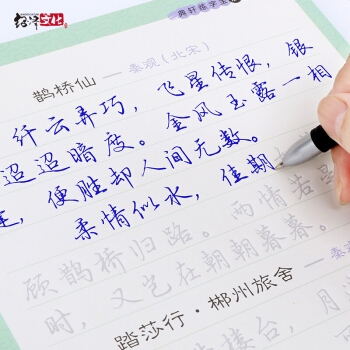 经洋文化
唐轩练字
鹊桥仙 — 秦观（北宋）
纤云弄巧，飞星传恨，银
迢迢暗度。金风玉露一相
逢，便胜却人间无数。
柔情似水，佳期
顾鹊桥归路。两情若是
时，又岂在朝朝暮暮。
踏莎行·郴州旅舍 — 秦
楼台，月